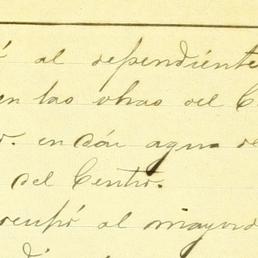 é al dependiente
en las obras del C
o. en dar agua de
del Centro.
ocupó al mayord